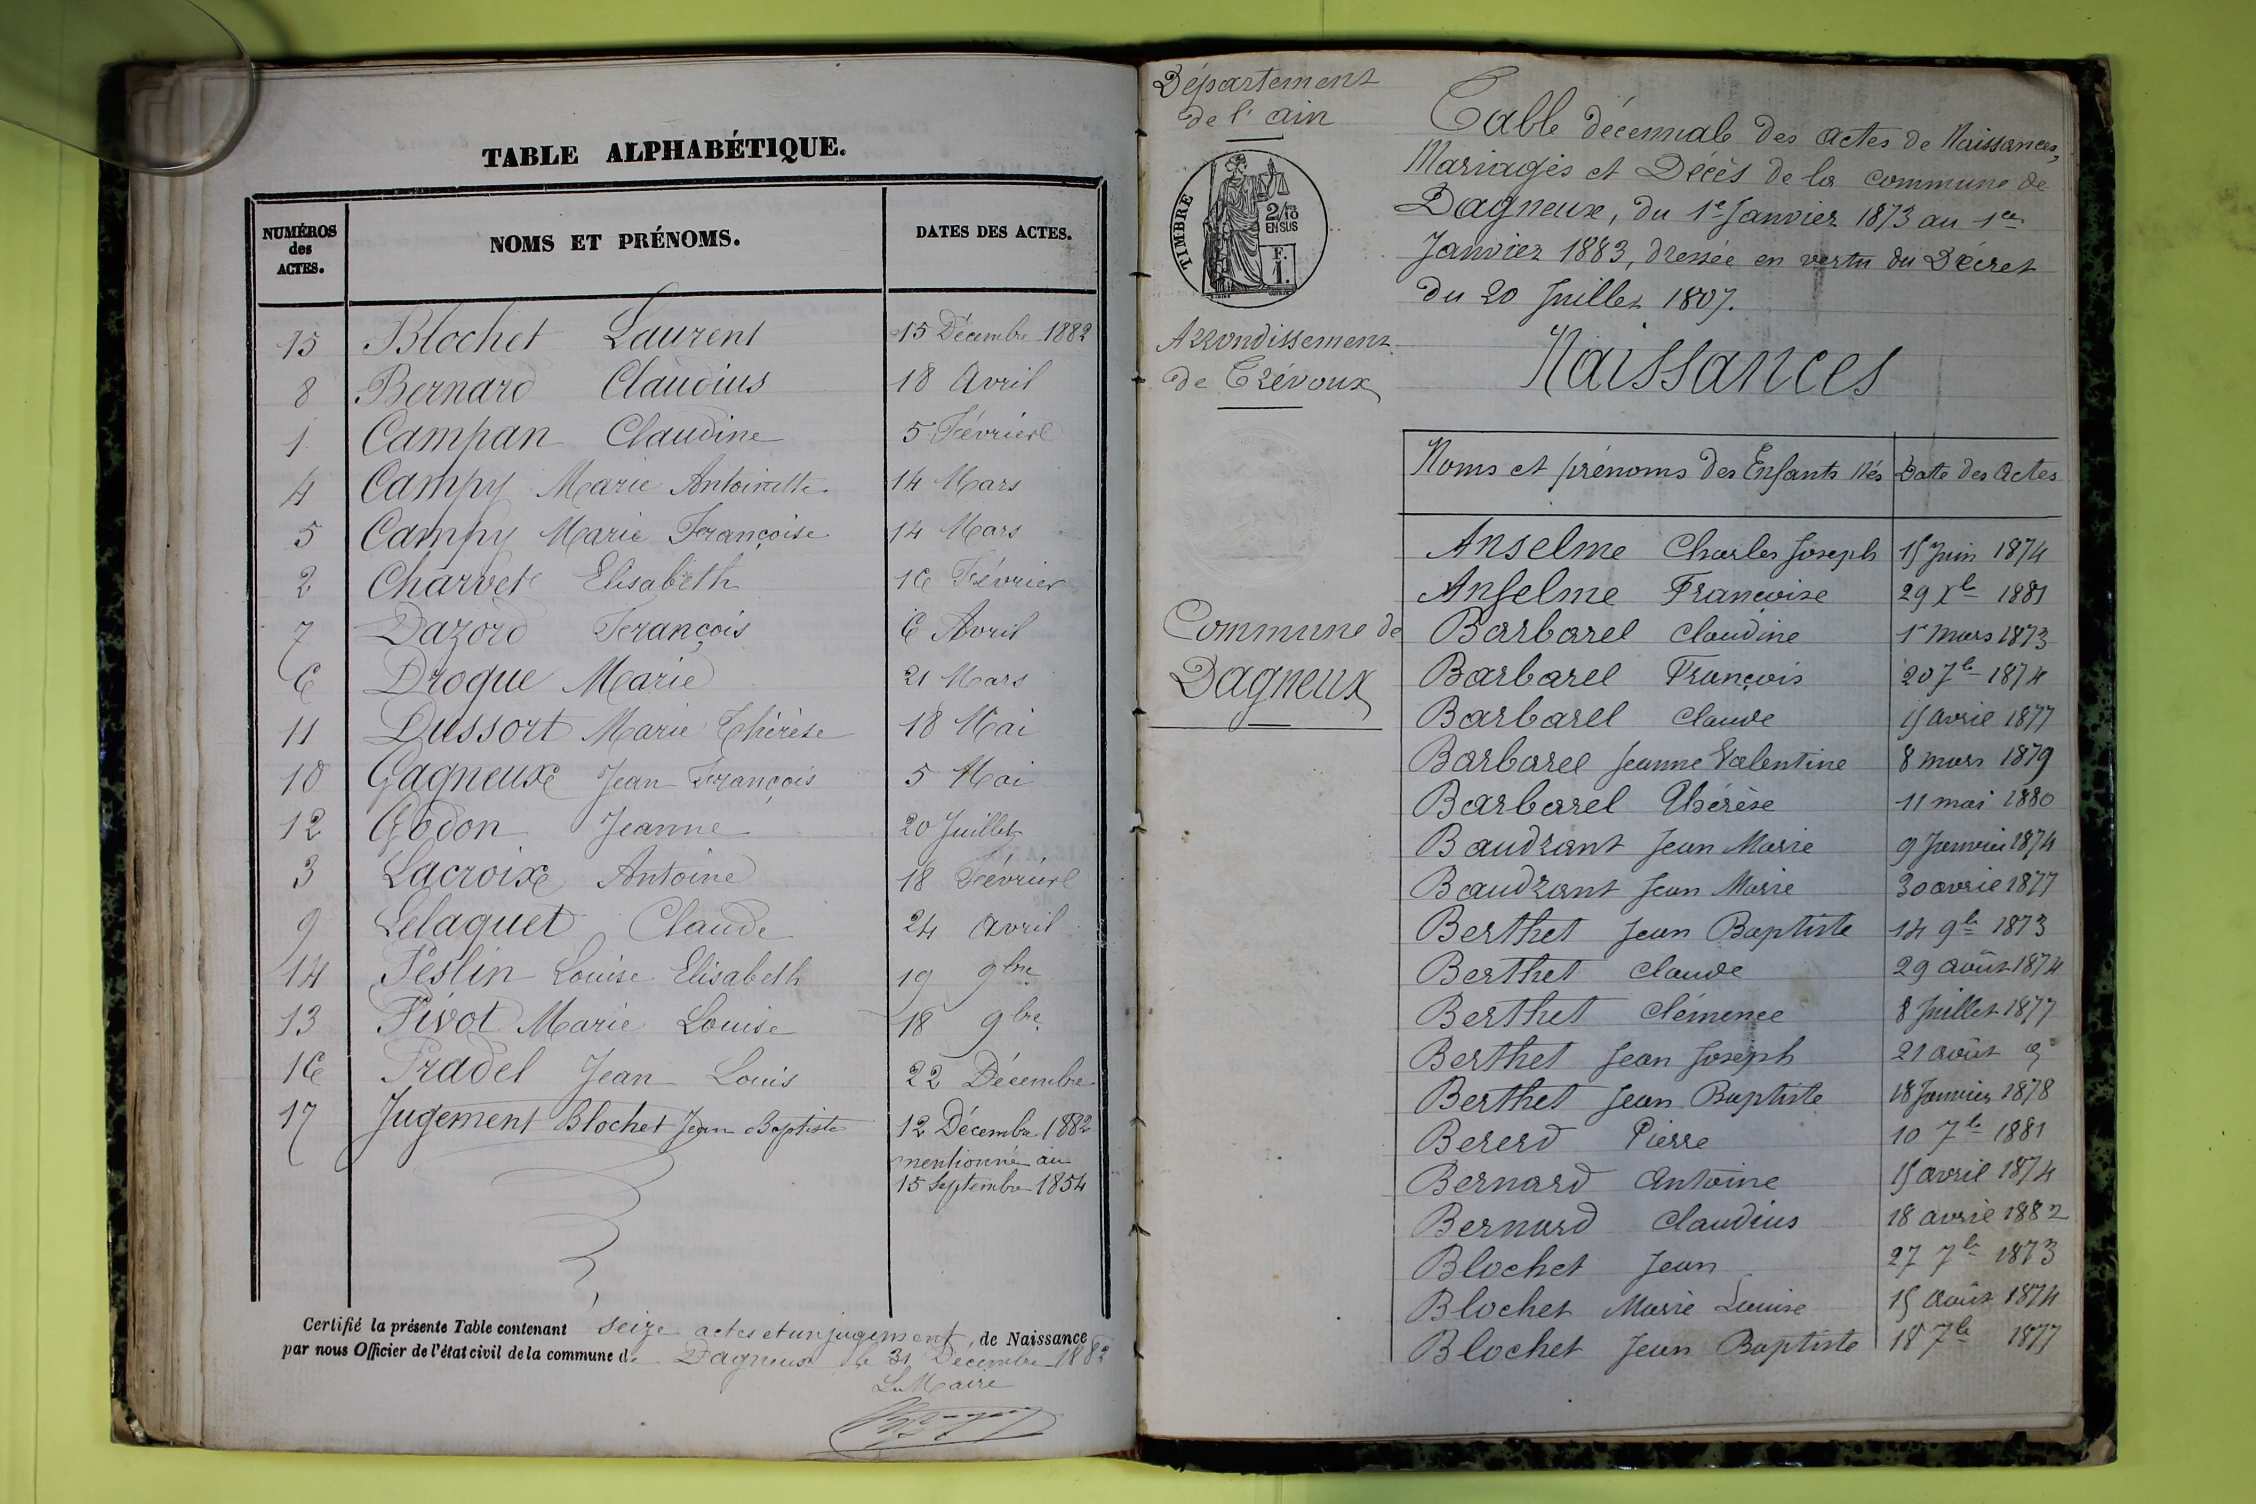 TABLE ALPHABÉTIQUE.
NUMÉROS des ACTES. NOMS ET PRÉNOMS. DATES DES ACTES.
15 Blochet Laurent 15 Décembre 1882
8 Bernard Claudius 18 Avril
1 Campan Claudine 5 Février
4 Campy Marie Antoinette 14 Mars
5 Campy Marie Françoise 14 Mars
2 Charvet Elisabeth 16 Février
7 Dazord François 6 Avril
6 Drogue Marie 21 Mars
11 Dussort Marie Thérèse 18 Mai
10 Gagneux Jean François 5 Mai
12 Godon Jeanne 20 Juillet
3 Lacroix Antoine 18 Février
9 Lelaquet Claude 24 Avril
14 Peslin Louise Elisabeth 19 9bre
13 Pivot Marie Louise 18 9bre
16 Pradel Jean Louis 22 Décembre
17 Jugement Blochet Jean Baptiste 12 Décembre 1882
mentionné au
15 Septembre 1854
Certifié la présente Table contenant seize actes et un jugement, de Naissance
par nous Officier de l'état civil de la commune de Dagneux le 31 Décembre 1882
Le Maire
Département
de l'ain
TIMBRE
2/10 EN SUS
F.
1.
Arrondissement
de Trévoux
Commune de
Dagneux
Table décennale des actes de Naissances,
Mariages et Décès de la commune de
Dagneux, du 1e Janvier 1873 au 1er
Janvier 1883, dressée en vertu du Décret
du 20 Juillet 1807.
Naissances
Noms et prénoms des Enfants Nés Datte des Actes
Anselme Charles Joseph 15 Juin 1874
Anselme Françoise 29 Xb 1881
Barbarel Claudine 1r mars 1873
Barbarel François 20 7b 1874
Barbarel Claude 15 avril 1877
Barbarel Jeanne Valentine 8 mars 1879
Barbarel Thérèse 11 mai 1880
Baudrant Jean Marie 9 Janvier 1874
Baudrant Jean Marie 30 avril 1877
Berthet Jean Baptiste 14 9b 1873
Berthet Claude 29 août 1874
Berthet Clémence 8 Juillet 1877
Berthet Jean Joseph 21 août
Berthet Jean Baptiste 18 Janvier 1878
Bererd Pierre 10 7b 1881
Bernard Antoine 15 avril 1874
Bernard Claudius 18 avril 1882
Blochet Jean 27 7b 1873
Blochet Marie Louise 15 août 1874
Blochet Jean Baptiste 18 7b 1877